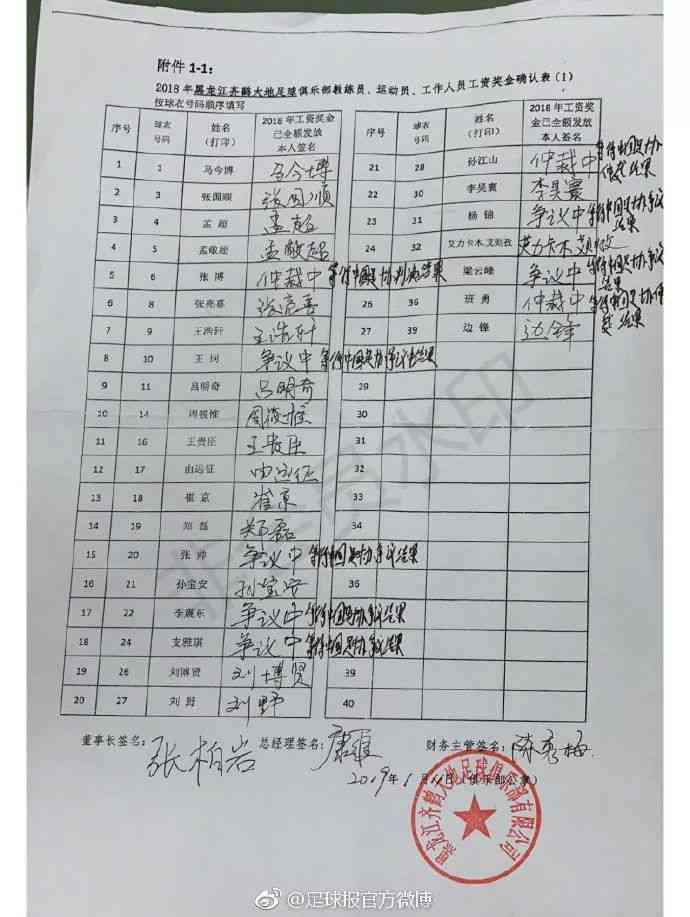 附件 1-1:
2018 年黑龙江齐鹤大地足球俱乐部教练员、运动员、工作人员工资奖金确认表 (1)
按球衣号码顺序填写
序号 球衣号码 姓名(打印) 2018 年工资奖金已全额发放本人签名
1 1 马今博 马今博
2 3 张国顺 张国顺
3 4 孟超 孟超
4 5 孟敬超 孟敬超
5 6 张博 仲裁中 等待中国足协判决结果
6 8 张亮喜 张亮喜
7 9 王浩轩 王浩轩
8 10 王 争议中 等待中国足协争议结果
9 11 吕明奇 吕明奇
10 14 周筱惟
11 16 王贵臣 王贵臣
12 17 由远征 由远征
13 18 崔京 崔京
14 19 郑磊 郑磊
15 20 张帅 争议中 等待中国足协争议结果
16 21 孙宝安 孙宝安
17 22 李震东 争议中 等待中国足协争议结果
18 24 支雅琪 争议中 等待中国足协争议结果
19 26 刘博贤 刘博贤
20 27 刘野 刘野
序号 球衣号码 姓名(打印) 2018 年工资奖金已全额发放本人签名
21 28 孙江山 仲裁中 等待中国足协仲裁结果
22 30 李昊寰 李昊寰
23 31 杨锦 争议中 等待中国足协争议结果
24 32 艾力卡木.艾则孜 艾力卡木
25 35 梁云峰 争议中 等待中国足协争议结果
26 36 班勇 仲裁中 等待中国足协仲裁结果
27 39 边锋 边锋
29
30
31
32
33
34
36
39
40
董事长签名: 张柏岩 总经理签名: 财务主管签名:
2019年1月11日(俱乐部公章)
黑龙江齐鹤大地足球俱乐部有限公司
非会员水印
@足球报官方微博